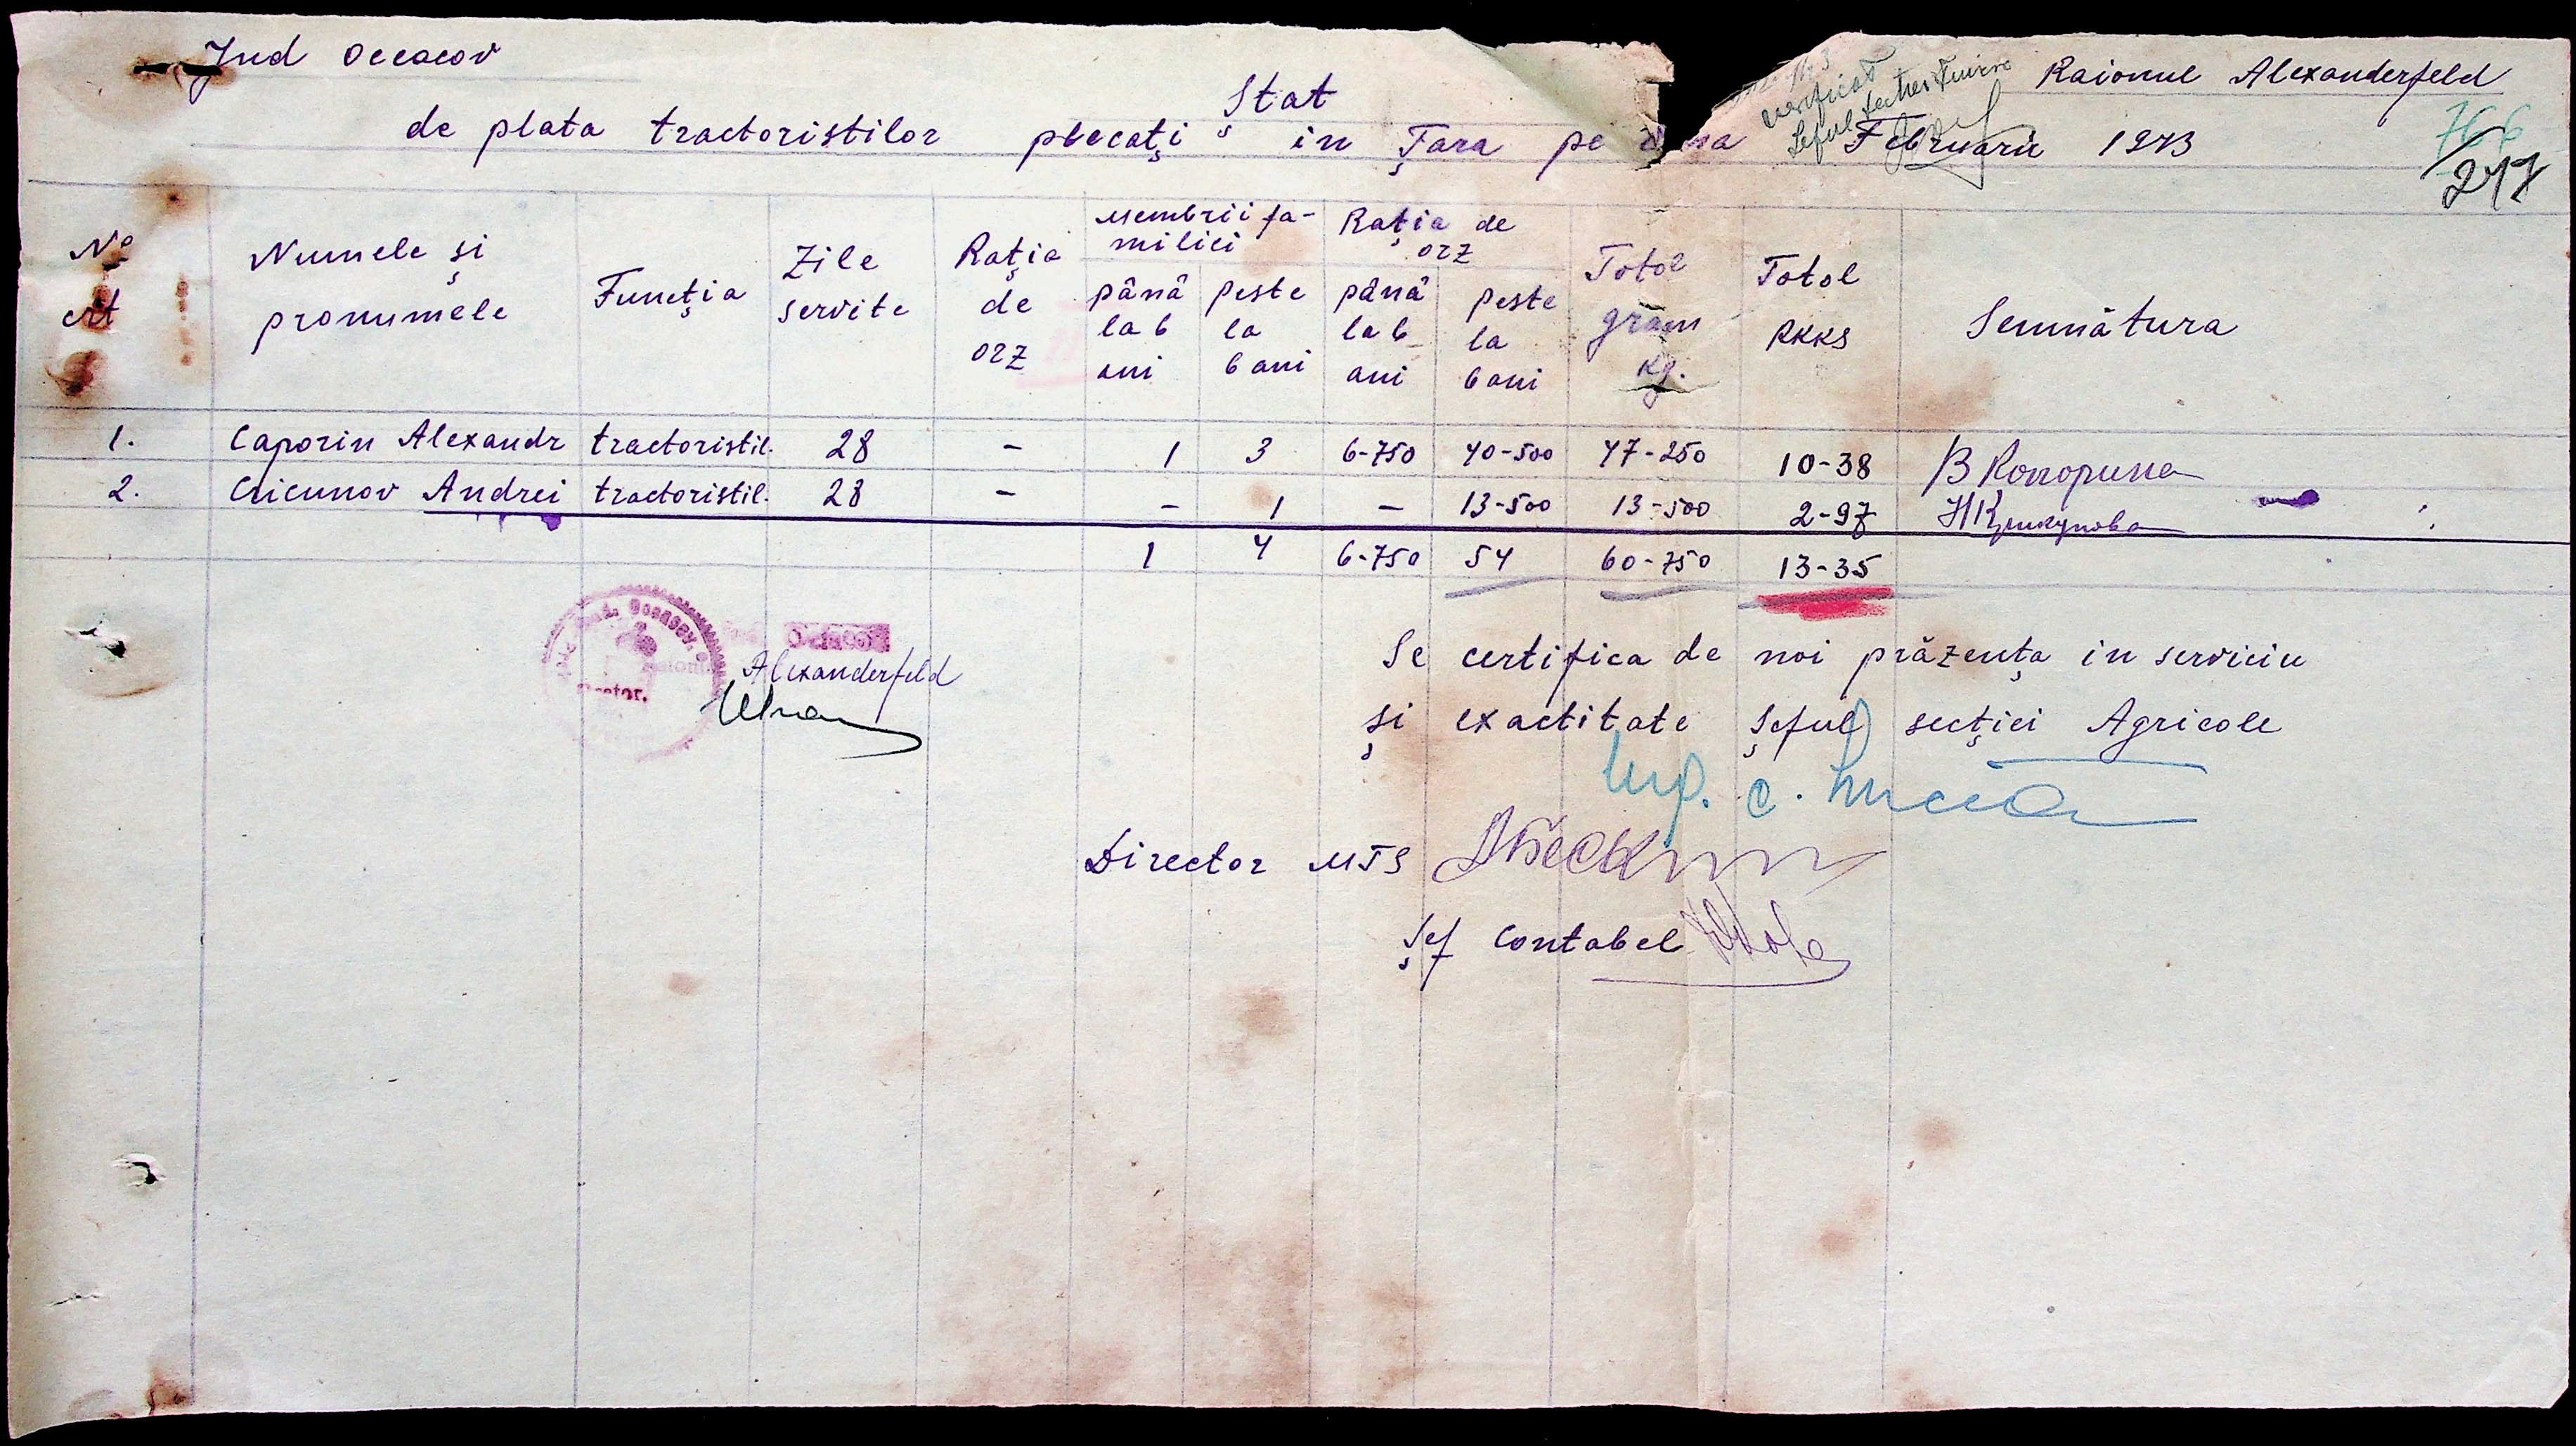 Jud Occacov
Raionul Alexanderfeld
Stat
verificat
Șeful
de plata tractoristilor plecați in Țara pe Februarie 1943
247
No crt | Numele și pronumele | Funeția | Zile servite | Rația de orz | Membrii familiei | Rația de orz | Total gram kg. | Total RKKS | Semnătura
până la 6 ani | peste la 6 ani | până la 6 ani | peste la 6 ani
1. | Caporin Alexandr | tractoristil. | 28 | - | 1 | 3 | 6-750 | 40-500 | 47-250 | 10-38 | В
2. | Cricunov Andrei | tractoristil. | 28 | - | - | 1 | - | 13-500 | 13-500 | 2-97 | Н Крикунова
1 | 4 | 6-750 | 54 | 60-750 | 13-35
Alexanderfeld
Se certifica de noi prăzența in serviciu
și exactitate Șeful secției Agricole
Director MTS
Șef contabel